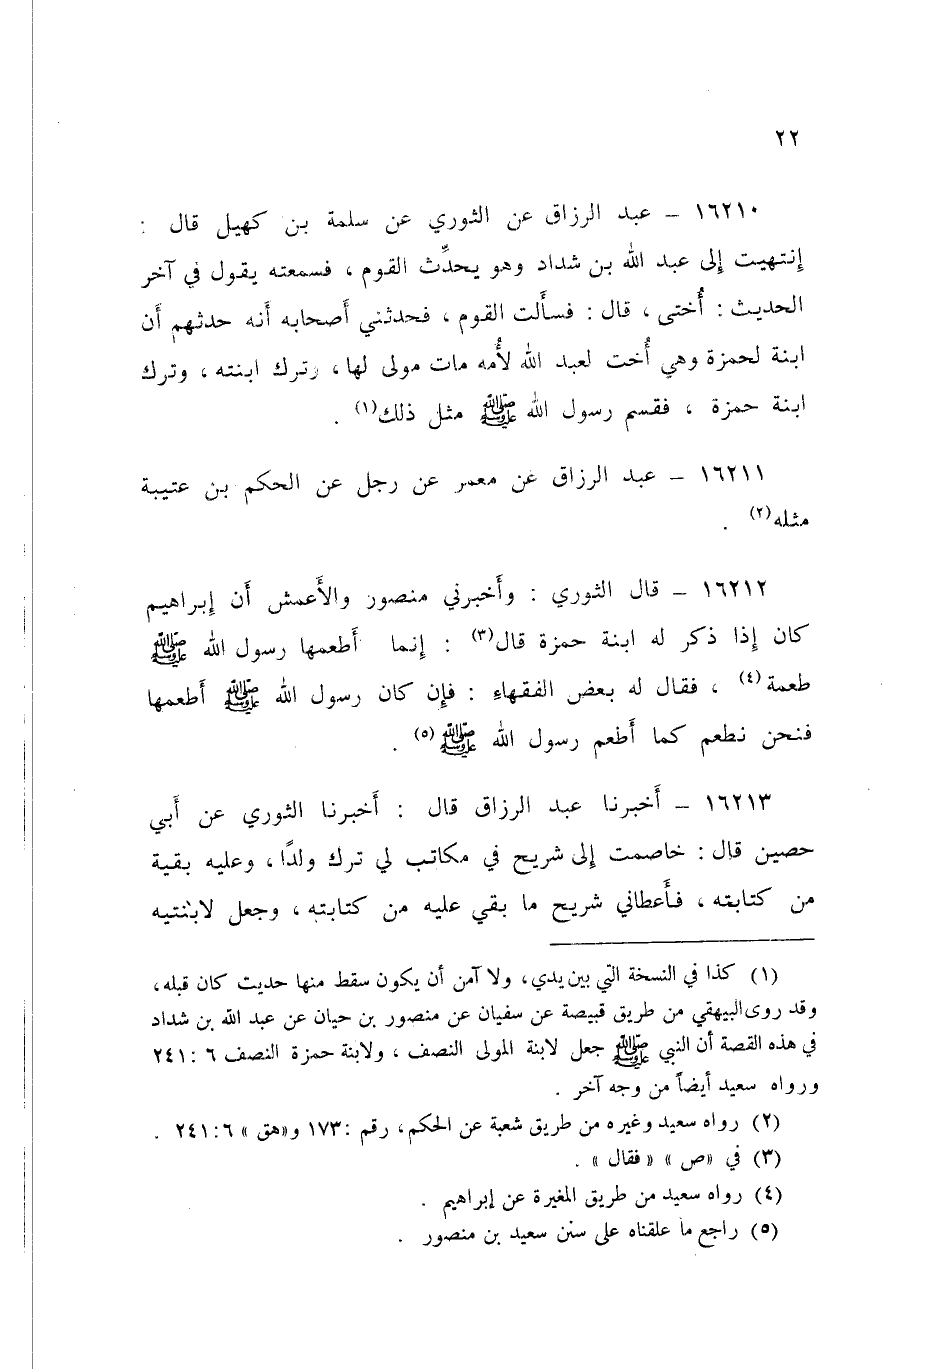 ٢٢
١٦٢١٠ - عبد الرزاق عن الثوري عن سلمة بن كهيل قال :
إنتهيت إلى عبد الله بن شداد وهو يحدِّث القوم ، فسمعته يقول في آخر
الحديث : أُختى ، قال : فسأَلت القوم ، فحدثني أَصحابه أَنه حدثهم أَن
ابنة لحمزة وهي أُخت لعبد الله لأُمه مات مولى لها ، وترك ابنته ، وترك
ابنة حمزة ، فقسم رسول الله ﷺ مثل ذلك(١) .
١٦٢١١ - عبد الرزاق عن معمر عن رجل عن الحكم بن عتيبة
مثله(٢) .
١٦٢١٢ - قال الثوري : وأَخبرني منصور والأَعمش أَن إبراهيم
كان إِذا ذكر له ابنة حمزة قال(٣) : إِنما أَطعمها رسول الله ﷺ
طعمة(٤) ، فقال له بعض الفقهاء : فإِن كان رسول الله ﷺ أَطعمها
فنحن نطعم كما أَطعم رسول الله ﷺ(٥) .
١٦٢١٣ - أَخبرنا عبد الرزاق قال : أَخبرنا الثوري عن أَبي
حصين قال : خاصمت إلى شريح في مكاتب لي ترك ولدًا ، وعليه بقية
من كتابته ، فأَعطاني شريح ما بقي عليه من كتابته ، وجعل لابنتيه
(١) كذا في النسخة التي بين يدي ، ولا آمن أن يكون سقط منها حديث كان قبله ،
وقد روى البيهقي من طريق قبيصة عن سفيان عن منصور بن حيان عن عبد الله بن شداد
في هذه القصة أن النبي ﷺ جعل لابنة المولى النصف ، ولابنة حمزة النصف ٦ : ٢٤١
ورواه سعيد أيضاً من وجه آخر .
(٢) رواه سعيد وغيره من طريق شعبة عن الحكم ، رقم : ١٧٣ و«هق » ٦ : ٢٤١ .
(٣) في «ص » « فقال » .
(٤) رواه سعيد من طريق المغيرة عن إبراهيم .
(٥) راجع ما علقناه على سنن سعيد بن منصور .